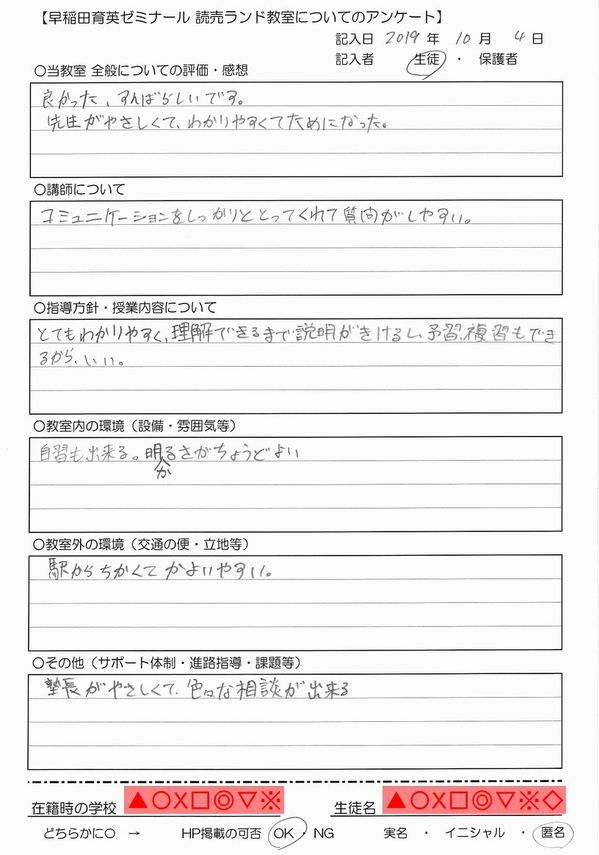 【早稲田育英ゼミナール 読売ランド教室についてのアンケート】
記入日 2019 年 10 月 4 日
記入者 生徒 ・ 保護者
○当教室 全般についての評価・感想
良かった、すんばらしいです。
先生がやさしくて、わかりやすくてためになった。
○講師について
コミュニケーションをしっかりととってくれて質問がしやすい。
○指導方針・授業内容について
とてもわかりやすく、理解できるまで説明がきけるし、予習、複習もでき
るから、いい。
○教室内の環境（設備・雰囲気等）
自習も出来る。明るさがちょうどよい
か
○教室外の環境（交通の便・立地等）
駅からちかくてかよいやすい。
○その他（サポート体制・進路指導・課題等）
塾長がやさしくて、色々な相談が出来る
在籍時の学校 ▲○X□◎▽※ 生徒名 ▲○X□◎▽※◇
どちらかに○ → HP掲載の可否 OK ・ NG 実名 ・ イニシャル ・ 匿名